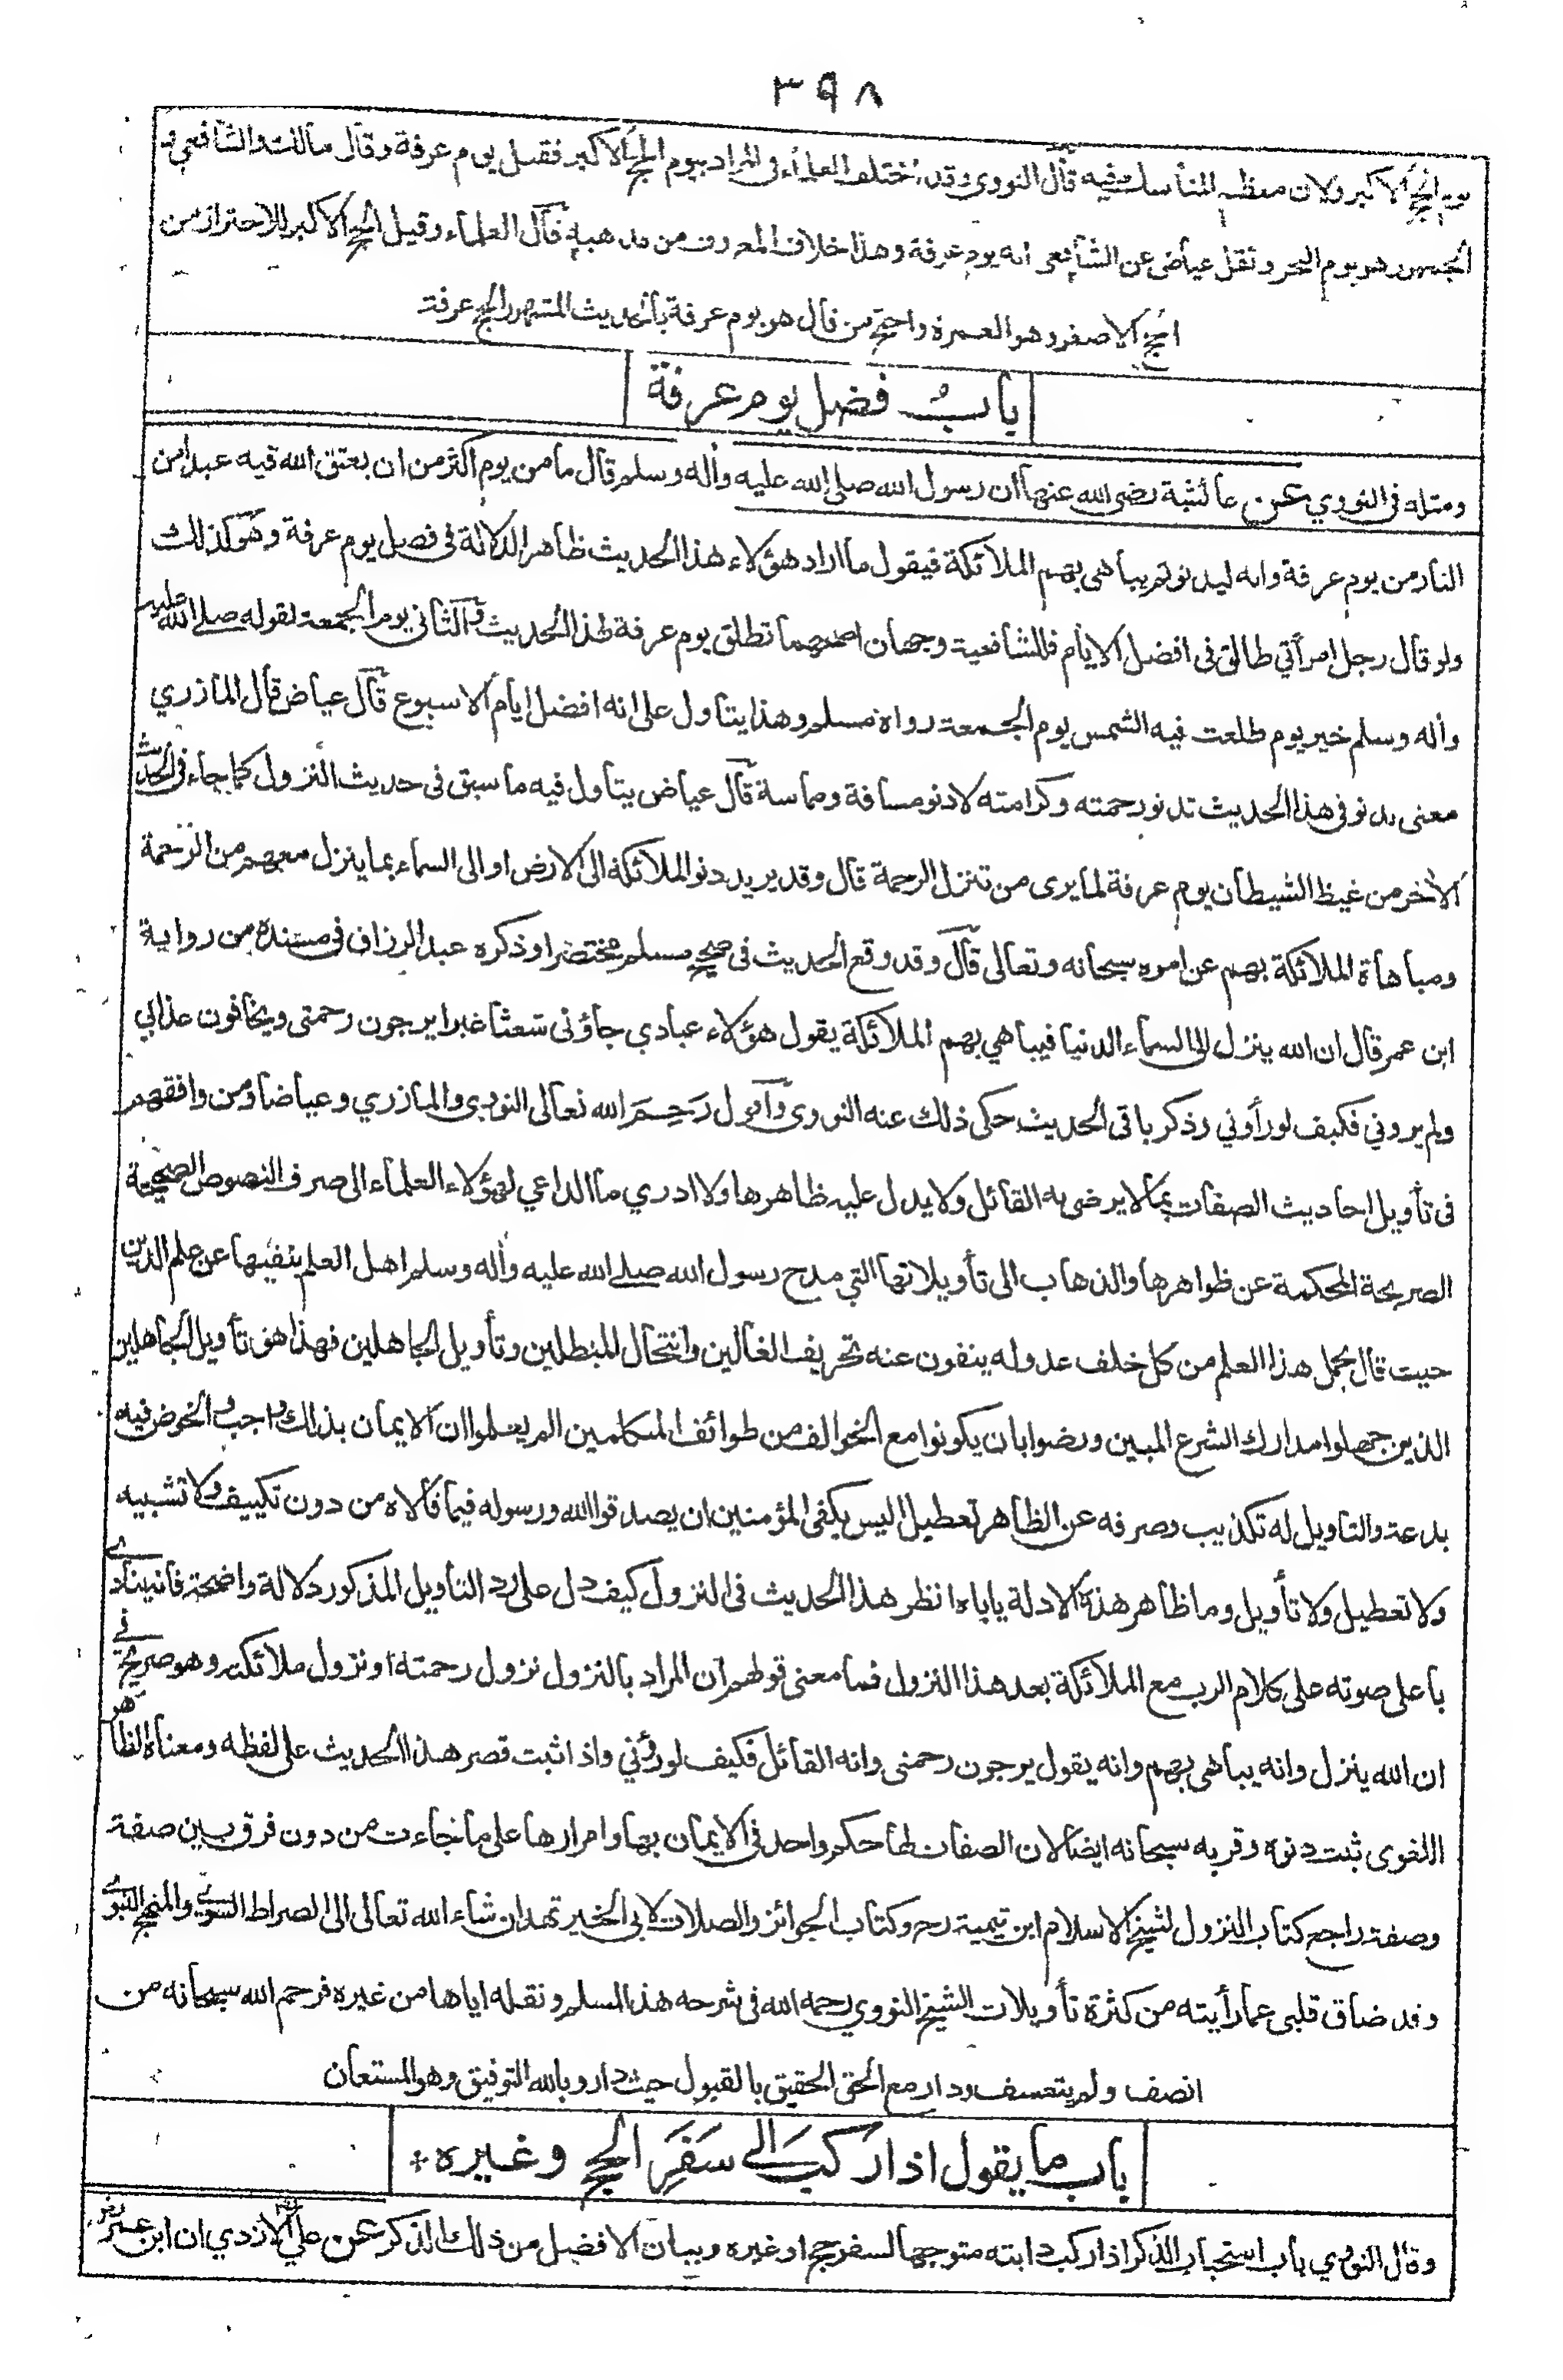 ٣٩٨
يوم الحج الاكبر ولان معظم المناسك فيه قال النووي وقد اختلف العلماء في المراد بيوم الحج الاكبر فقيل يوم عرفة وقال مالك والشافعي و
الجمهور هو يوم النحر ونقل عياض عن الشافعي انه يوم عرفة وهذا خلاف المعروف من مذهبه قال العلماء وقيل الحج الاكبر للاحتراز من
الحج الاصغر وهو العمرة واحتج من قال هو يوم عرفة بالحديث المشهور الحج عرفة
باب فضل يوم عرفة
ومثله في النووي عن عائشة رضي الله عنها ان رسول الله صلى الله عليه وآله وسلم قال ما من يوم اكثر من ان يعتق الله فيه عبدا من
النار من يوم عرفة وانه ليدنو ثم يباهي بهم الملائكة فيقول ما اراد هؤلاء هذا الحديث ظاهر الدلالة في فضل يوم عرفة وهو كذلك
ولو قال رجل امرأتي طالق في افضل الايام فللشافعية وجهان اصحهما تطلق يوم عرفة لهذا الحديث والثاني يوم الجمعة لقوله صلى الله عليه
وآله وسلم خير يوم طلعت فيه الشمس يوم الجمعة رواه مسلم وهذا يتاول على انه افضل ايام الاسبوع قال عياض قال المازري
معنى يدنو في هذا الحديث تدنو رحمته وكرامته لا دنو مسافة ومماسة قال عياض يتاول فيه ما سبق في حديث النزول كما جاء في الحديث
الآخر من غيظ الشيطان يوم عرفة لما يرى من تنزل الرحمة قال وقد يريد دنو الملائكة الى الارض او الى السماء بما ينزل معهم من الرحمة
ومباهاة الملائكة بهم عن امره سبحانه وتعالى قال وقد وقع الحديث في صحيح مسلم مختصرا وذكره عبد الرزاق في مسنده من رواية
ابن عمر قال ان الله ينزل الى السماء الدنيا فيباهي بهم الملائكة يقول هؤلاء عبادي جاؤني شعثا غبرا يرجون رحمتي ويخافون عذابي
ولم يروني فكيف لو رأوني وذكر باقي الحديث حكى ذلك عنه النووي وأقول رَحِمَ الله تعالى النووي والمازري وعياضا ومن وافقهم
في تأويل احاديث الصفات بما لا يرضى به القائل ولا يدل عليه ظاهرها ولا ادري ما الداعي لهؤلاء العلماء الى صرف النصوص الصحيحة
الصريحة المحكمة عن ظواهرها والذهاب الى تأويلاتها التي مدح رسول الله صلى الله عليه وآله وسلم اهل العلم بنفيها عن علم الدين
حيث قال يحمل هذا العلم من كل خلف عدوله ينفون عنه تحريف الغالين وانتحال المبطلين وتأويل الجاهلين فهذا هو تأويل الجاهلين
الذين جهلوا مدارك الشرع المبين ورضوا بان يكونوا مع الخوالف من طوائف المتكلمين الم يعلموا ان الايمان بذلك واجب والخوض فيه
بدعة والتاويل له تكذيب وصرفه عن الظاهر تعطيل اليس يكفي المؤمنين ان يصدقوا الله ورسوله فيما قالاه من دون تكييف ولا تشبيه
ولا تعطيل ولا تأويل وما ظاهر هذه الادلة ياباه انظر هذا الحديث في النزول كيف دل على رد التأويل المذكور دلالة واضحة فانه ينادي
باعلى صوته على كلام الرب مع الملائكة بعد هذا النزول فما معنى قولهم ان المراد بالنزول نزول رحمته او نزول ملائكته وهو صريح في
ان الله ينزل وانه يباهي بهم وانه يقول يرجون رحمتي وانه القائل فكيف لو رؤني واذا ثبت قصر هذا الحديث على لفظه ومعناه الظاهر
اللغوي ثبت دنوه وقربه سبحانه ايضا لان الصفات لها حكم واحد في الايمان بها وامرارها على ما جاءت من دون فرق بين صفة
وصفة راجع كتاب النزول لشيخ الاسلام ابن تيمية رح وكتاب الجوائز والصلات لابي الخير تهد ان شاء الله تعالى الى الصراط السوي والمنهج النبوي
وقد ضاق قلبي عما رأيته من كثرة تأويلات الشيخ النووي رحمه الله في شرحه هذا لمسلم ونقله اياها من غيره فرحم الله سبحانه من
انصف ولم يتعسف ودار مع الحق الحقيق بالقبول حيث دار وبالله التوفيق وهو المستعان
باب ما يقول اذا ركب الى سَفَرِ الحج وغيره *
وقال النووي باب استحباب الذكر اذا ركب دابته متوجها لسفر حج او غيره وبيان الافضل من ذلك الذكر عن علي الازدي ان ابن عمر